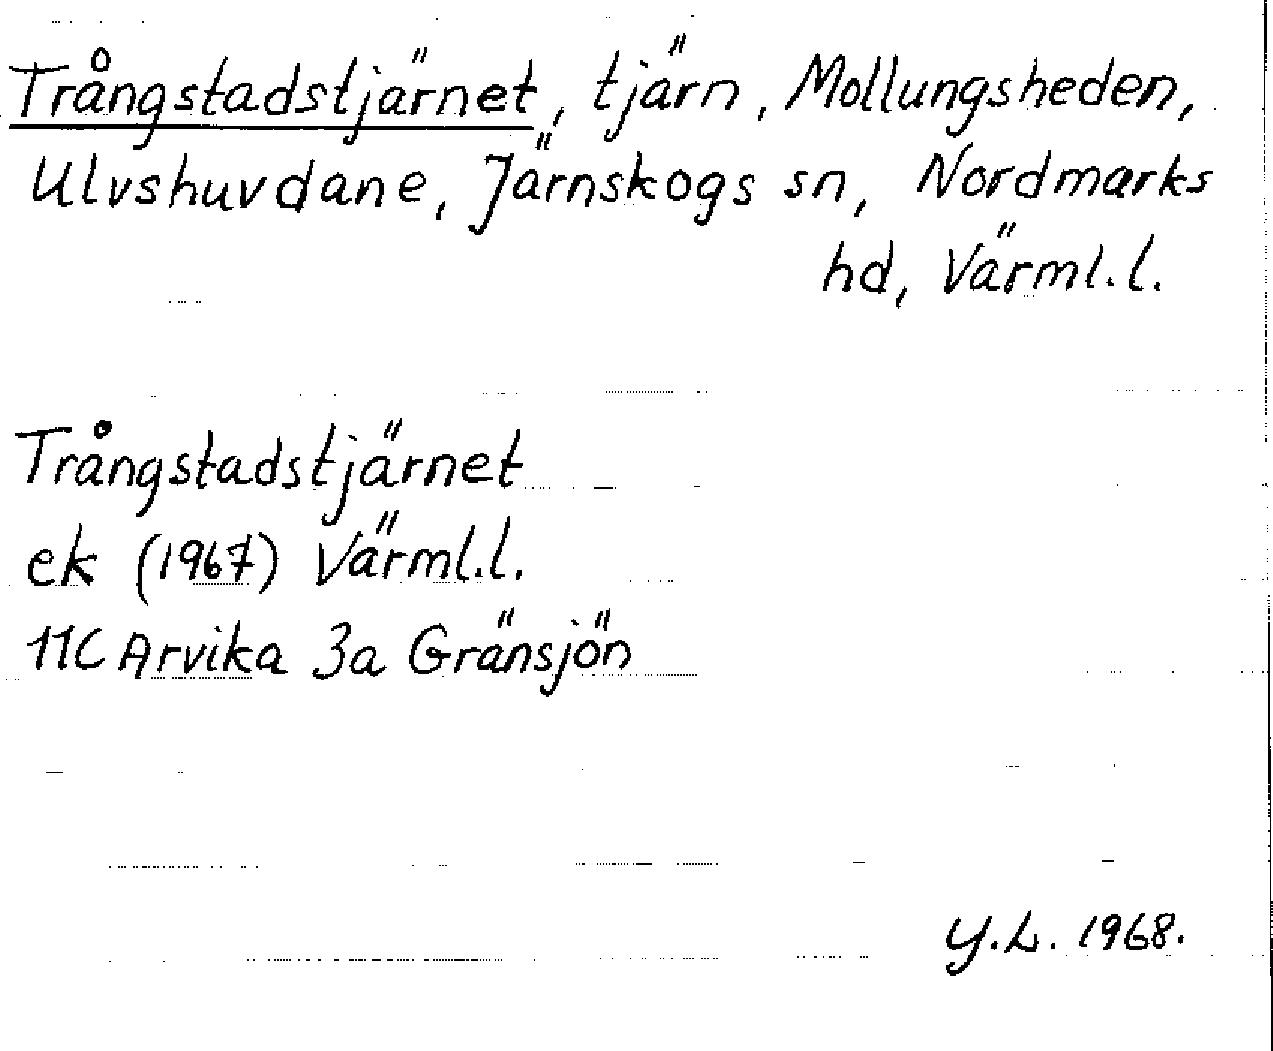 Trångstadstjärnet, tjärn, Mollungsheden,
Ulvshuvdane, Järnskogs sn, Nordmarks
hd, Värml.l.
Trångstadstjärnet
ek (1967) Värml.l.
11C Arvika 3a Gränsjön
Y.L. 1968.